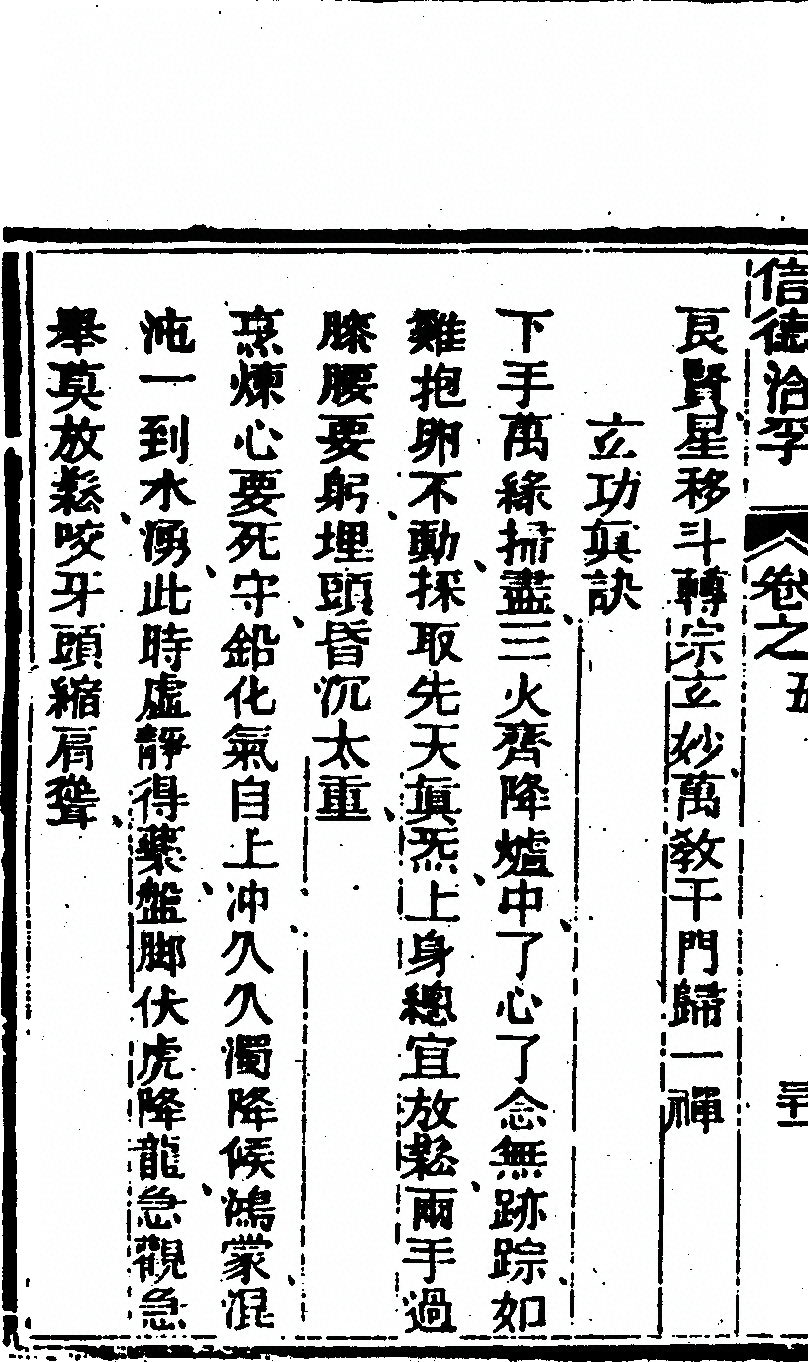 信德洽孚 卷之五 三十一
良賢星移斗轉宗立妙萬教千門歸一禪
立功眞訣
下手萬緣掃盡三火齊降爐中了心了念無跡踪如
雞抱卵不動採取先天眞炁上身總宜放鬆兩手過
膝腰要躬埋頭昏沉太重
烹煉心要死守鉛化氣自上冲久久濁降候鴻蒙混
沌一到水湧此時虛靜得藥盤脚伏虎降龍急觀急
舉莫放鬆咬牙頭縮肩聳